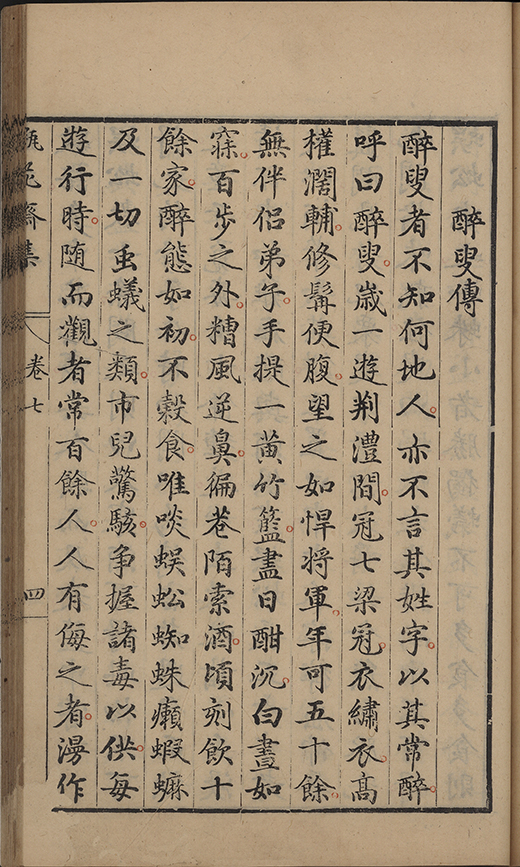 醉叟傳
醉叟者不知何地人亦不言其姓字以其常醉
呼曰醉叟歲一遊荆澧間冠七梁冠衣繡衣髙
權濶輔修髯便腹望之如悍将軍年可五十餘
無伴侣弟子手提一黄竹籃盡日酣沉白晝如
寐百步之外糟風逆鼻徧巷陌索酒頃刻飲十
餘家醉態如初不穀食唯啖蜈蚣蜘蛛癩蝦蟆
及一切虫蟻之類市兒驚駭争握諸毒以供每
遊行時随而觀者常百餘人人有侮之者漫作
瓶花齋集
卷七
四